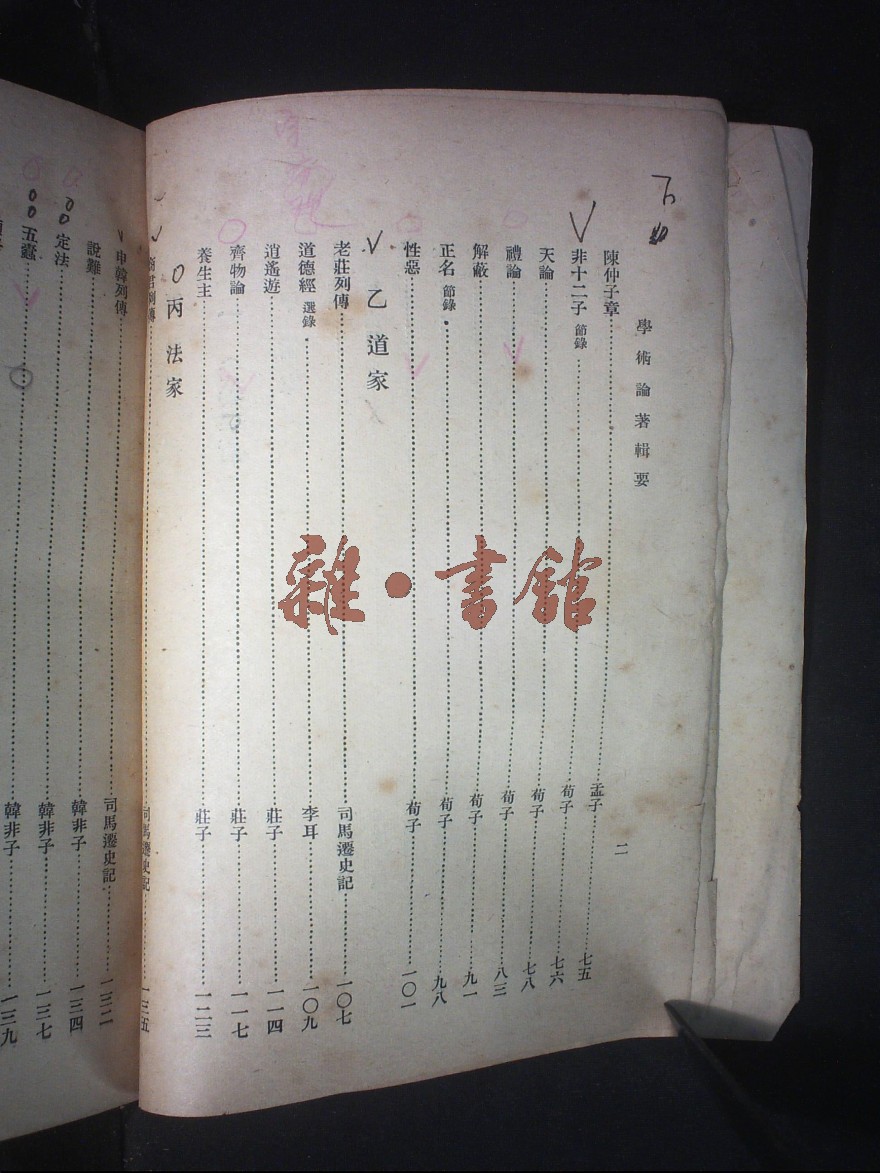 學術論著輯要
二
陳仲子章 孟子 七五
非十二子 節錄 荀子 七六
天論 荀子 七八
禮論 荀子 八三
解蔽 荀子 九一
正名 節錄 荀子 九八
性惡 荀子 一〇一
乙 道家
老莊列傳 司馬遷史記 一〇七
道德經 選錄 李耳 一〇九
逍遙遊 莊子 一一四
齊物論 莊子 一一七
養生主 莊子 一二三
丙 法家
君列傳 司馬遷史記 一三五
申韓列傳 司馬遷史記 一三二
說難 韓非子 一三四
定法 韓非子 一三七
五蠹 韓非子 一三九
雜·書館